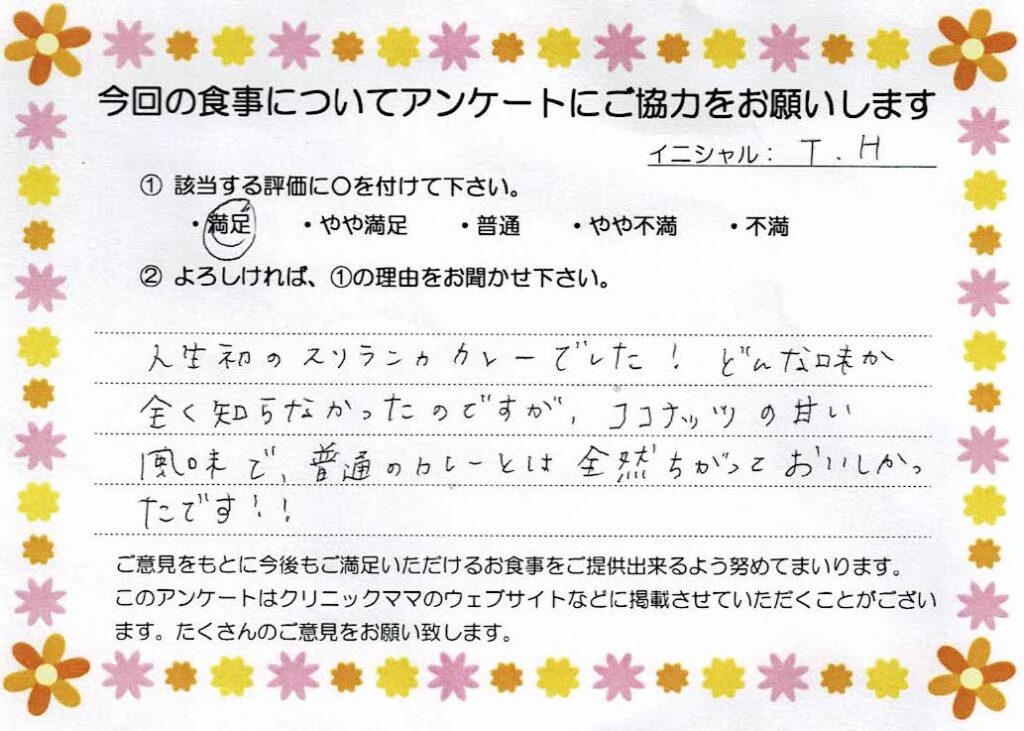 今回の食事についてアンケートにご協力をお願いします
イニシャル： T.H
① 該当する評価に○を付けて下さい。
・満足 ・やや満足 ・普通 ・やや不満 ・不満
② よろしければ、①の理由をお聞かせ下さい。
人生初のスリランカカレーでした！ どんな味か
全く知らなかったのですが、ココナッツの甘い
風味で、普通のカレーとは全然ちがっておいしかっ
たです！！
ご意見をもとに今後もご満足いただけるお食事をご提供出来るよう努めてまいります。
このアンケートはクリニックママのウェブサイトなどに掲載させていただくことがござい
ます。たくさんのご意見をお願い致します。